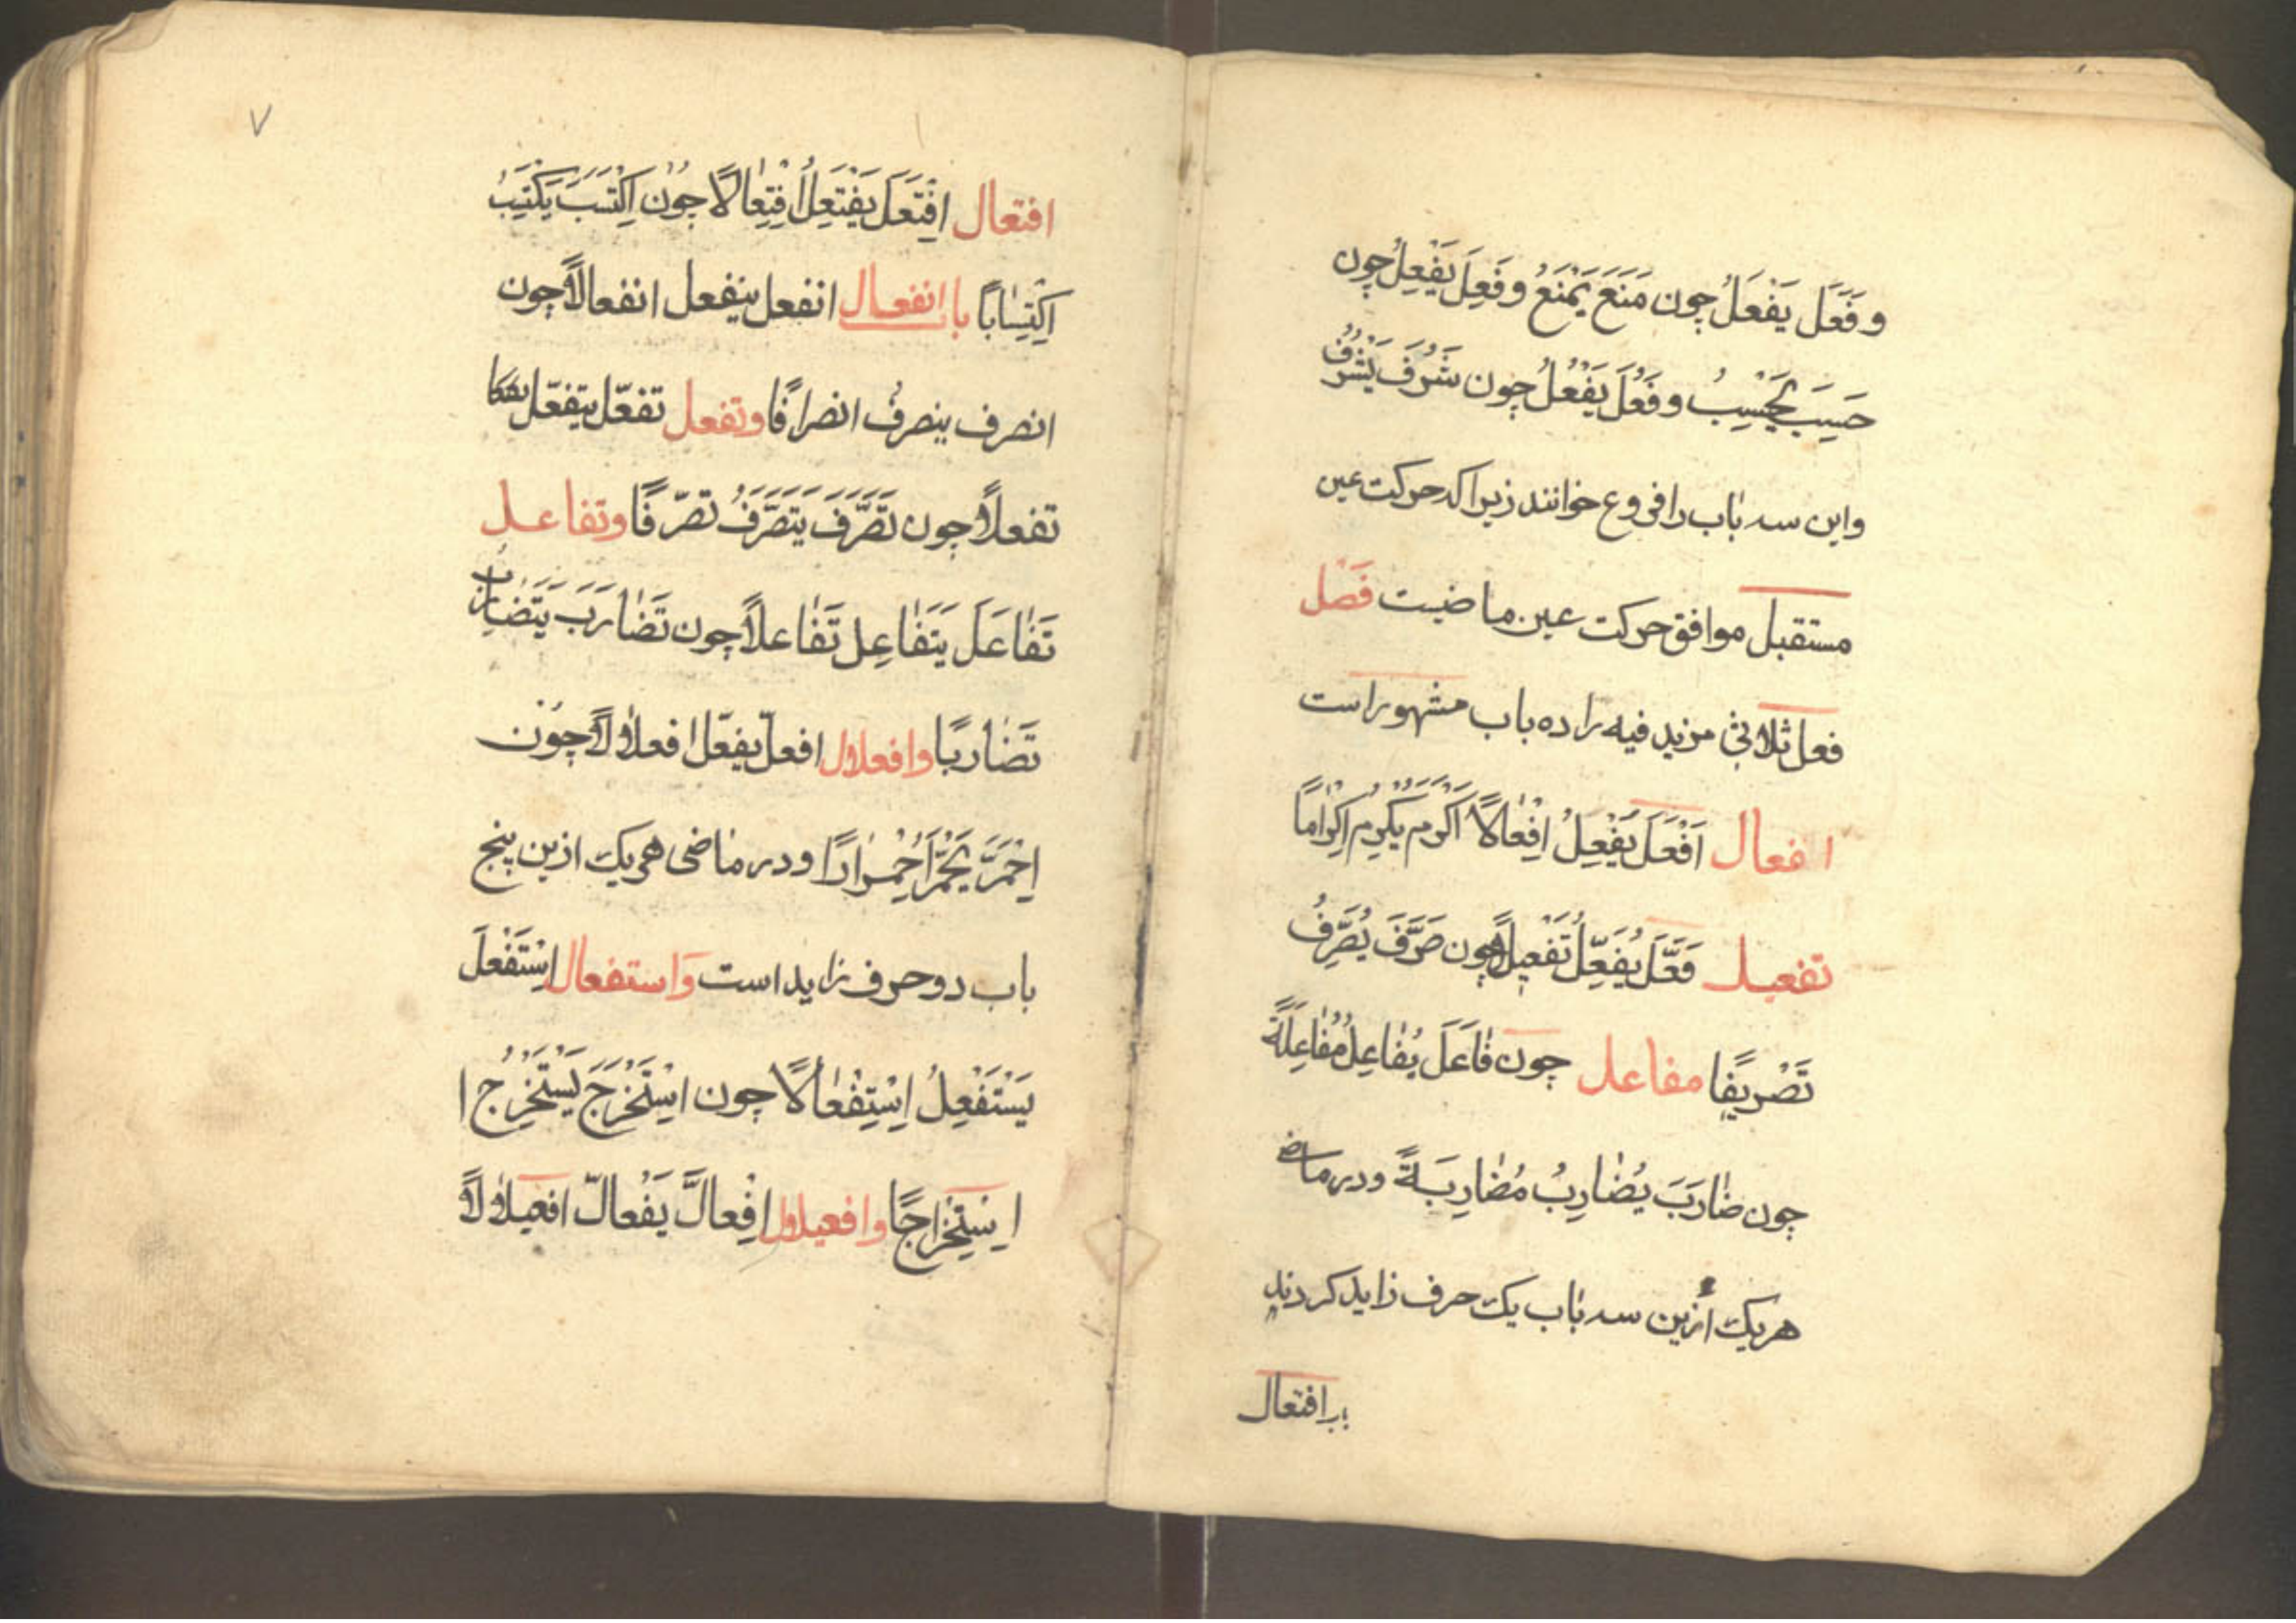 و فَعَلَ يَفْعَلُ چون مَنَعَ يَمْنَعُ و فَعِلَ يَفْعِلُ چون
حَسِبَ يَحْسِبُ و فَعُلَ يَفْعُلُ چون شَرُفَ يَشْرُفُ
واین سه باب را فروع خوانند زیرا که حرکت عین
مستقبل موافق حرکت عین ماضیت فَصْل
فعل ثلاثی مزید فیه را ده باب مشهور است
افعال اَفْعَلَ يُفْعِلُ اِفْعَالًا اَكْرَمَ يُكْرِمُ اِكْرَامًا
تفعیل فَعَّلَ يُفَعِّلُ تَفْعِيلًا چون صَرَّفَ يُصَرِّفُ
تَصْرِيفًا مفاعل چون فَاعَلَ يُفَاعِلُ مُفَاعِلَةً
چون ضَارَبَ يُضَارِبُ مُضَارِبَةً و در ماضی
هر یک ازین سه باب یک حرف زاید کردند
افتعال
٧
افتعال اِفْتَعَلَ يَفْتَعِلُ اِفْتِعَالًا چون اِكْتَسَبَ يَكْتَسِبُ
اِكْتِسَابًا با انفعال انفعل ینفعل انفعالاً چون
انصرف ینصرفُ انصرافًا وتفعل تفعّل یتفعّل
تفعلاً چون تَصَرَّفَ يَتَصَرَّفُ تصرّفًا وتفاعل
تَفَاعَلَ يَتَفَاعِل تَفَاعلاً چون تَضَارَبَ يَتَضَارَبُ
تَضَاربًا وافعلال افعلّ یفعلّ افعلالاً چون
اِحْمَرَّ يَحْمَرُّ اِحْمِرَارًا و در ماضی هر یک ازین پنج
باب دو حرف زاید است وَاستفعال اِسْتَفْعَلَ
يَسْتَفْعِلُ اِسْتِفْعَالًا چون اسْتَخْرَجَ يَسْتَخْرِجُ ا
اِسْتِخْرَاجًا وافعیلال اِفْعَالَّ يَفْعَالّ افعیلالاً